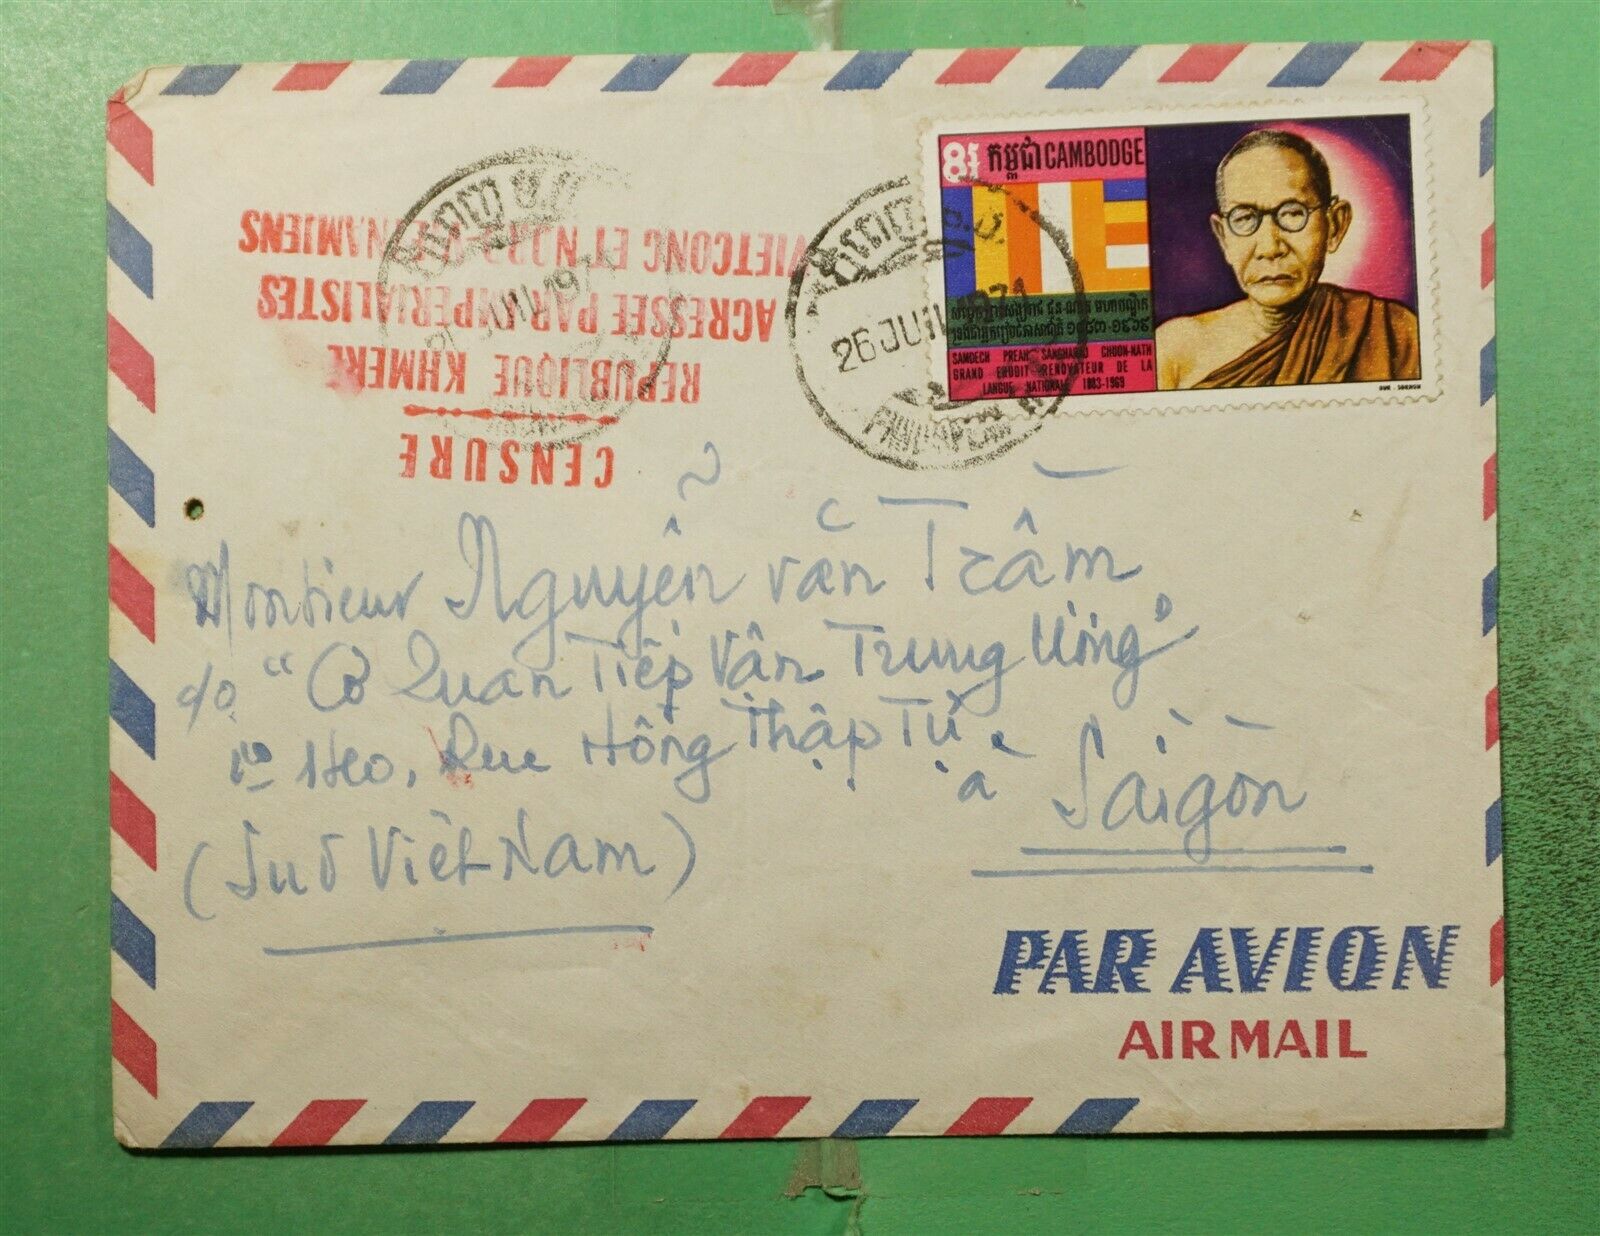 8f កម្ពុជា CAMBODGE
សម្តេចព្រះសង្ឃរាជ ជួន-ណាត មហាបណ្ឌិត
១៨៨៣-១៩៦៩
SAMDECH PREAH SANGHARAJ CHOON-NATH
GRAND ERUDIT RENOVATEUR DE LA
LANGUE NATIONALE 1883-1969
26 JUIN 1971
PHNOM-PENH
CENSURE
REPUBLIQUE KHMERE
AGRESSEE PAR IMPERIALISTES
VIETCONG ET NORD-VIETNAMIENS
Monsieur Nguyễn văn Trầm
c/o "Cơ Quan Tiếp Vận Trung Ương"
No 140, Rue Hồng Thập Tự
à Saigòn
(Sud Việt Nam)
PAR AVION
AIR MAIL